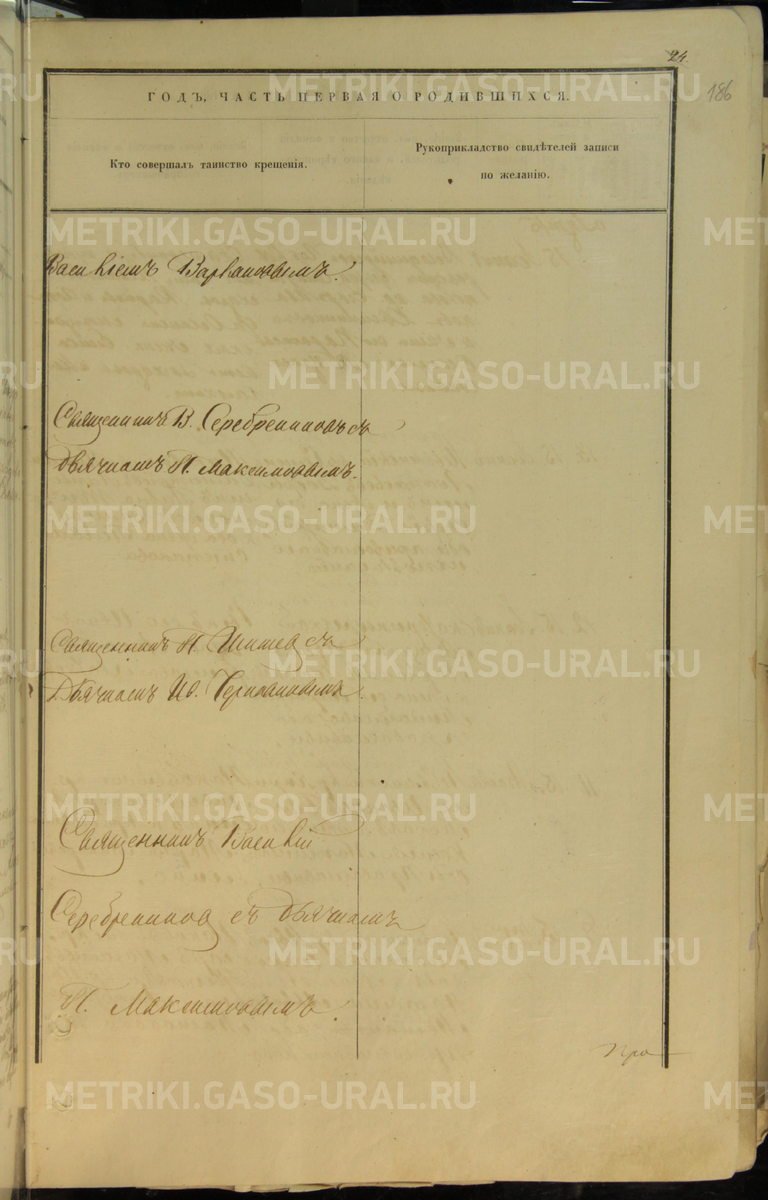 24.
186
ГОДЪ, ЧАСТЬ ПЕРВАЯ О РОДИВШИХСЯ.
Кто совершалъ таинство крещенія.
Рукоприкладство свидѣтелей записи
по желанію.
METRIKI.GASO-URAL.RU
Василіемъ Варлаковымъ.
Священникъ В. Серебренниковъ съ
дьячкомъ П. Максимовымъ.
Священникъ съ
Дьячкомъ
Священникъ Василій
Серебренников съ дьячкомъ
П. Максимовымъ.
Про